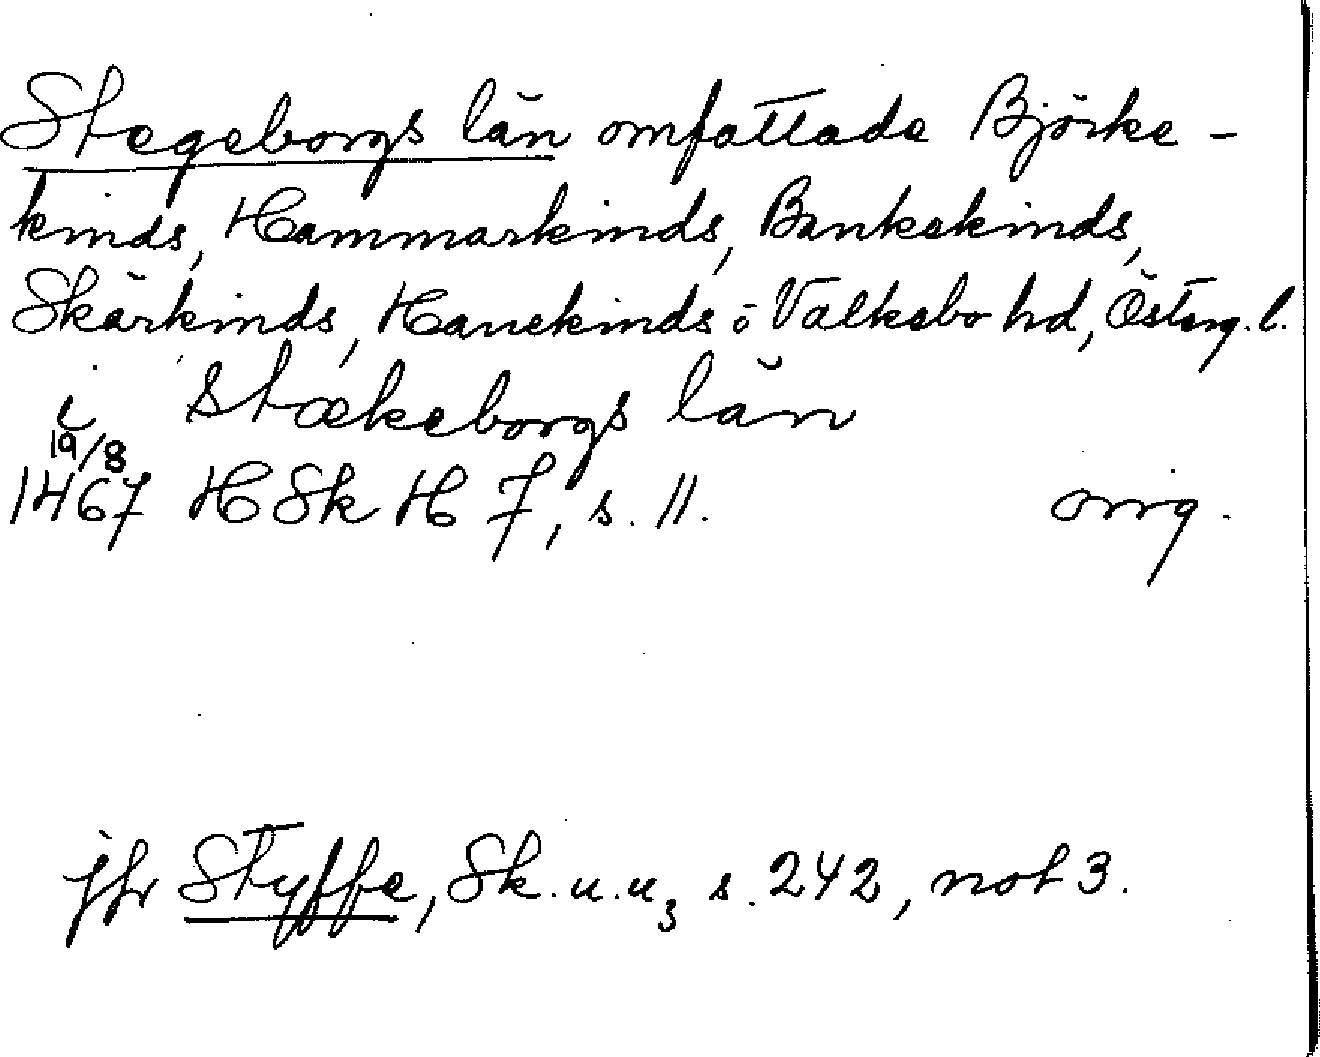 Stegeborgs län omfattade Björke-
kinds, Hammarkinds, Bankekinds,
Skärkinds, Hanekinds o Valkebo hd, Österg. l.
i Stækeborgs län
19/8
1467 H Sk H 7, s. 11. orig.
jfr Styffe, Sk. u. u3 s. 242, not 3.